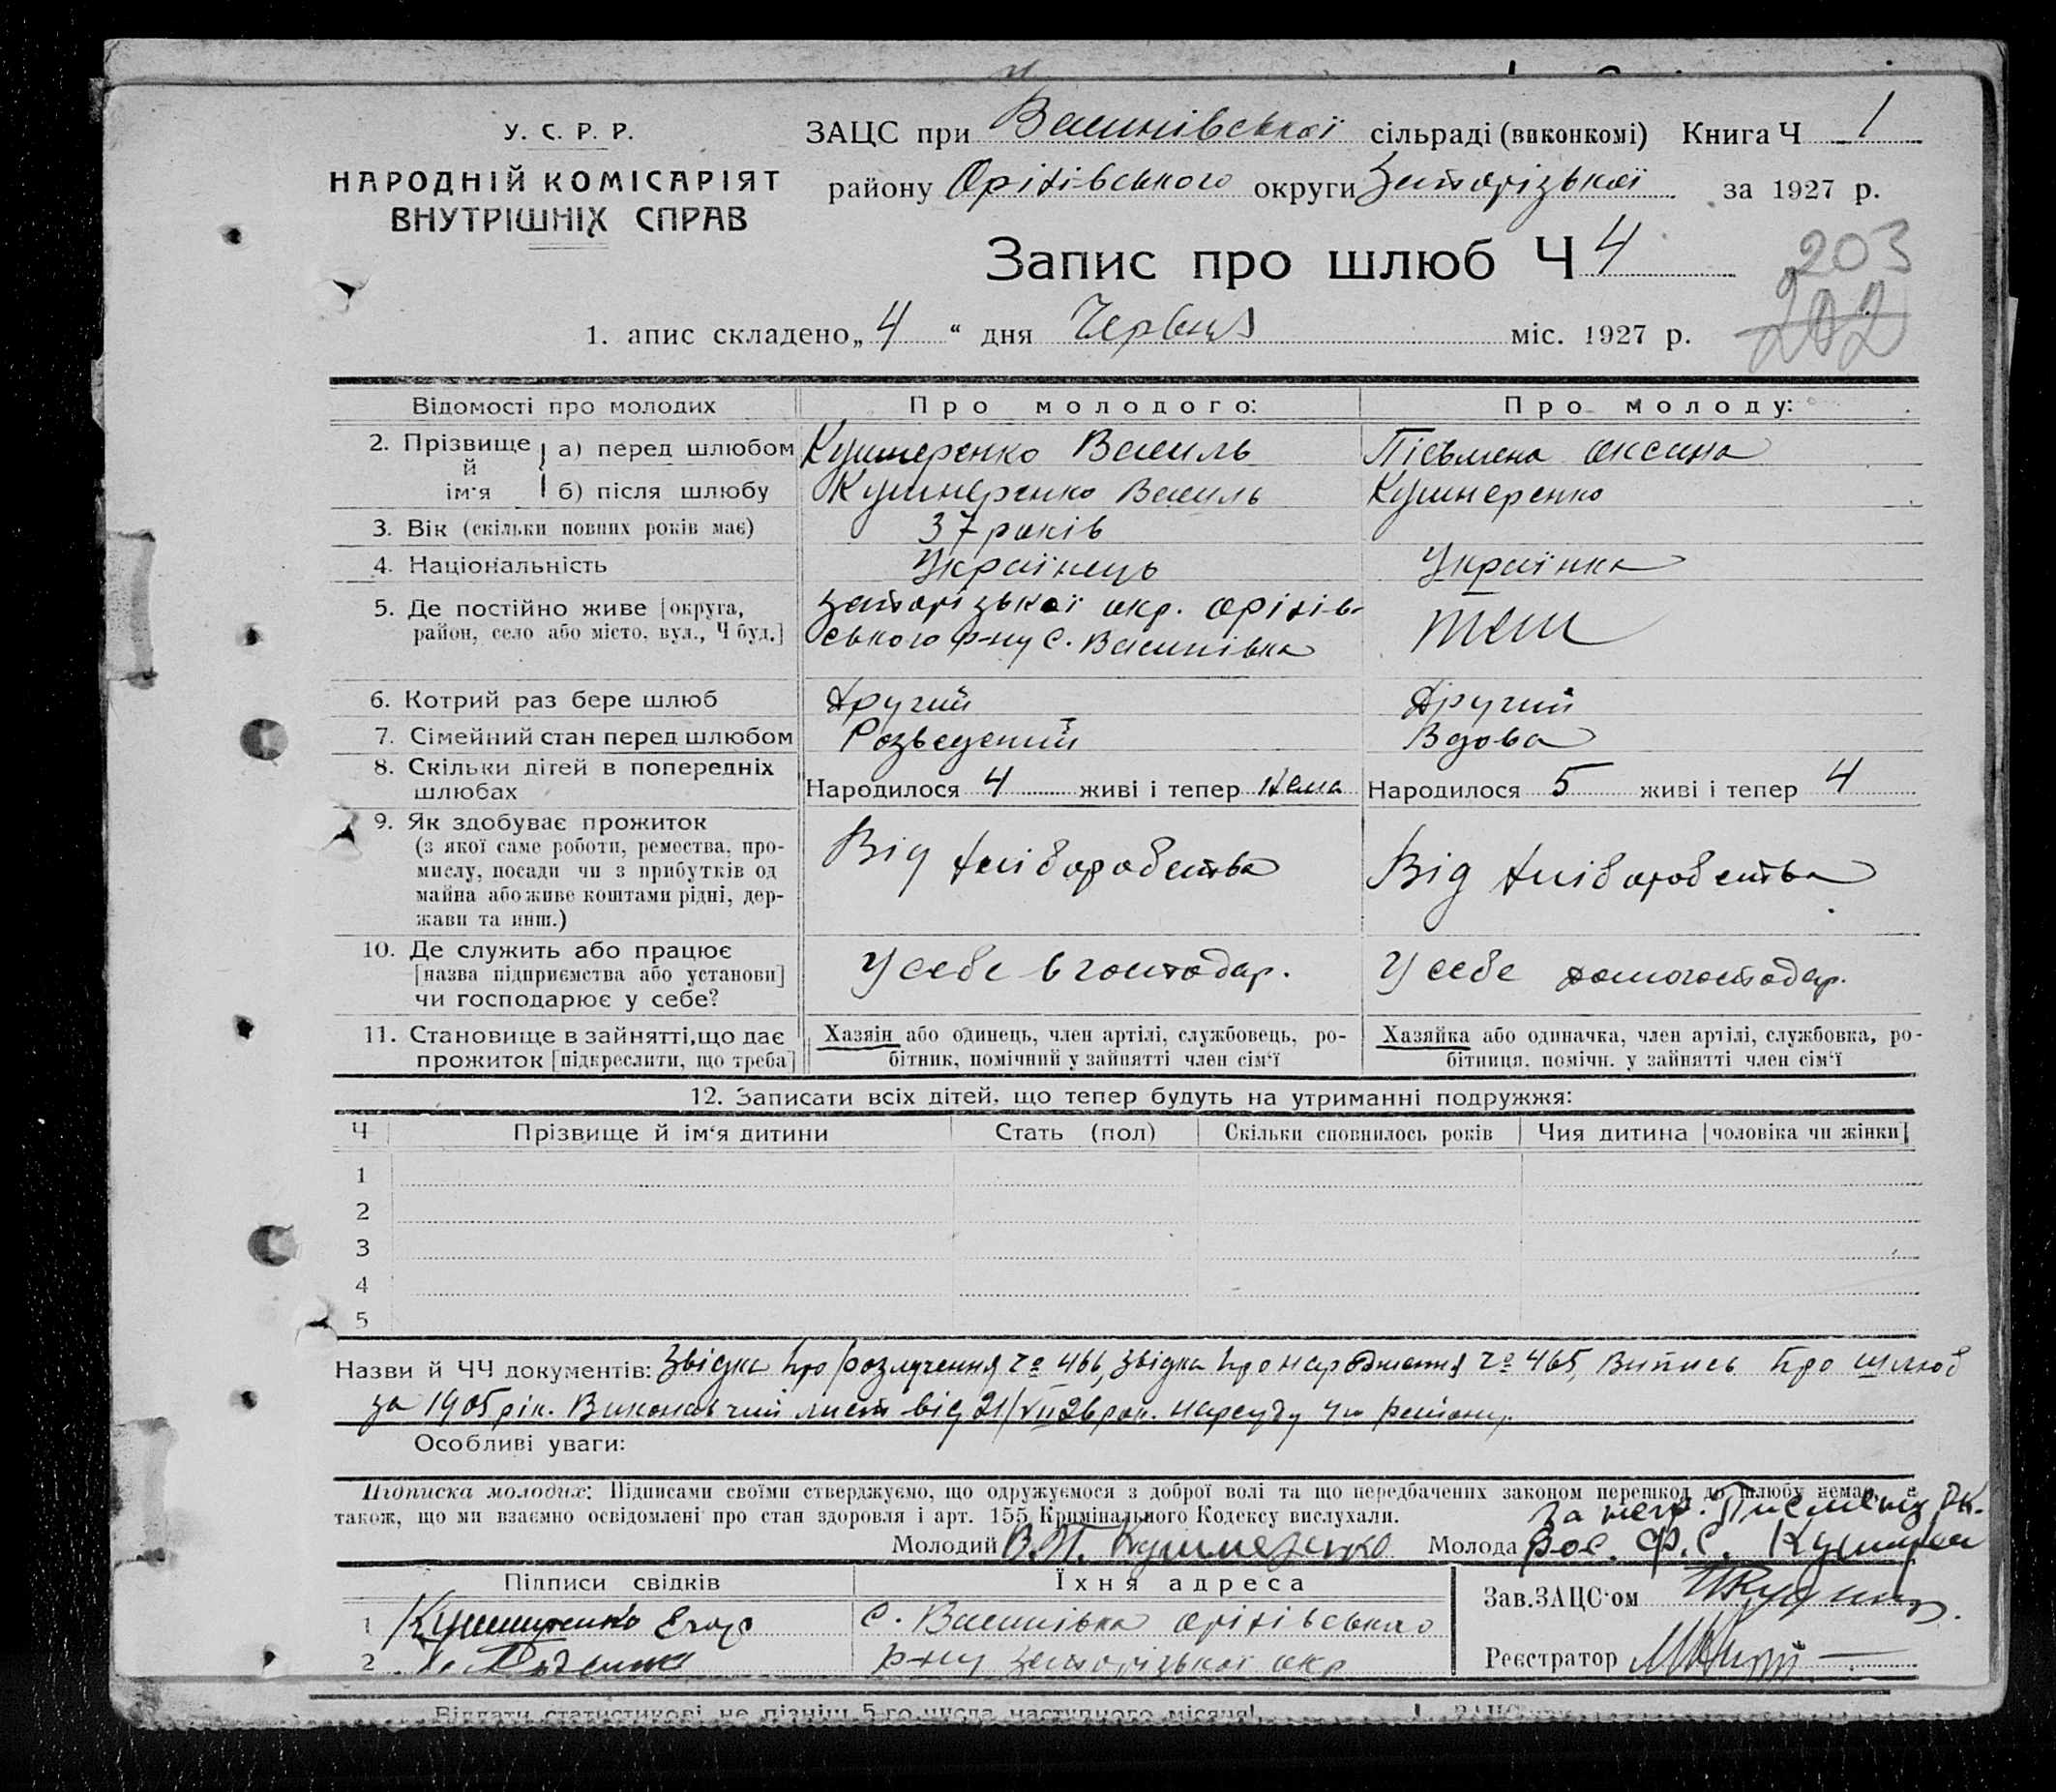 У. С. Р. Р.
НАРОДНІЙ КОМІСАРІЯТ
ВНУТРІШНІХ СПРАВ
ЗАЦС при Василівської сільраді (виконкомі) Книга Ч 1
району Оріхівського округи Запорізької за 1927 р.
Запис про шлюб Ч 4
203
202
1. апис складено „4“ дня Червня міс. 1927 р.
Відомості про молодих Про молодого: Про молоду:
2. Прізвище й ім'я а) перед шлюбом Кушнеренко Василь Пісьмена Оксана
б) після шлюбу Кушнеренко Василь Кушнеренко
3. Вік (скільки повних років має) 37 років
4. Національність Українець Українка
5. Де постійно живе [округа, Запорізької окр. Оріхів-
район, село або місто, вул., Ч буд.] ського р-ну с. Василівка Теж
6. Котрий раз бере шлюб Другий Другий
7. Сімейний стан перед шлюбом Розведений Вдова
8. Скільки дітей в попередніх
шлюбах Народилося 4 живі і тепер Нема Народилося 5 живі і тепер 4
9. Як здобуває прожиток
(з якої саме роботи, ремества, про-
мислу, посади чи з прибутків од Від хліборобства Від хліборобства
майна або живе коштами рідні, дер-
жави та инш.)
10. Де служить або працює
[назва підприємства або установи] У себе в господар. У себе домогосподар.
чи господарює у себе?
11. Становище в зайнятті, що дає Хазяін або одинець, член артілі, службовець, ро- Хазяйка або одиначка, член артілі, службовка, ро-
прожиток [підкреслити, що треба] бітник, помічний у зайнятті член сім'ї бітниця, помічн. у зайнятті член сім'ї
12. Записати всіх дітей, що тепер будуть на утриманні подружжя:
Ч Прізвище й ім'я дитини Стать (пол) Скільки сповнилось років Чия дитина [чоловіка чи жінки]
1
2
3
4
5
Назви й ЧЧ документів: Звідка про розлучення № 466, звідка про народження № 465, Випись про шлюб
за 1905 рік. Виконавчий лист від 21/VII 26 рок. нарсуду району.
Особливі уваги:
Підписка молодих: Підписами своїми стверджуємо, що одружуємося з доброї волі та що передбачених законом перешкод до шлюбу немає, а
також, що ми взаємно освідомлені про стан здоровля і арт. 155 Кримінального Кодексу вислухали. За негр. Писмену Ок.
Молодий В.П. Кушнеренко Молода рос. Ф. С.
Підписи свідків Їхня адреса
Зав. ЗАЦС'ом
1 Кушниренко Егор с. Василівка Оріхівського
2 р-ну Запорізької окр Реєстратор
Віддати статистикові не пізніш 5-го числа наступного місяця!